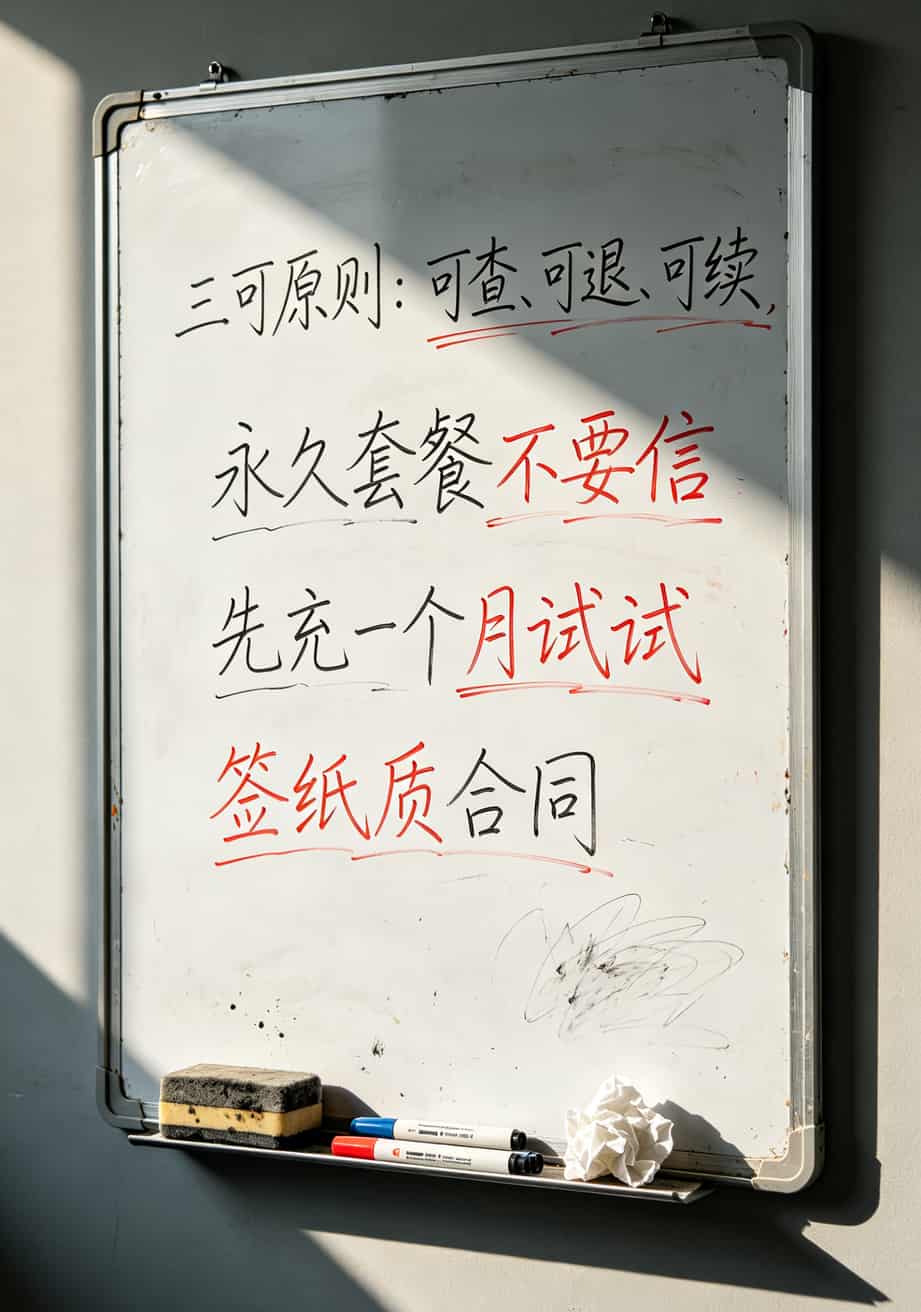 三可原则：可查、可退、可续，
永久套餐不要信
先充一个月试试
签纸质合同